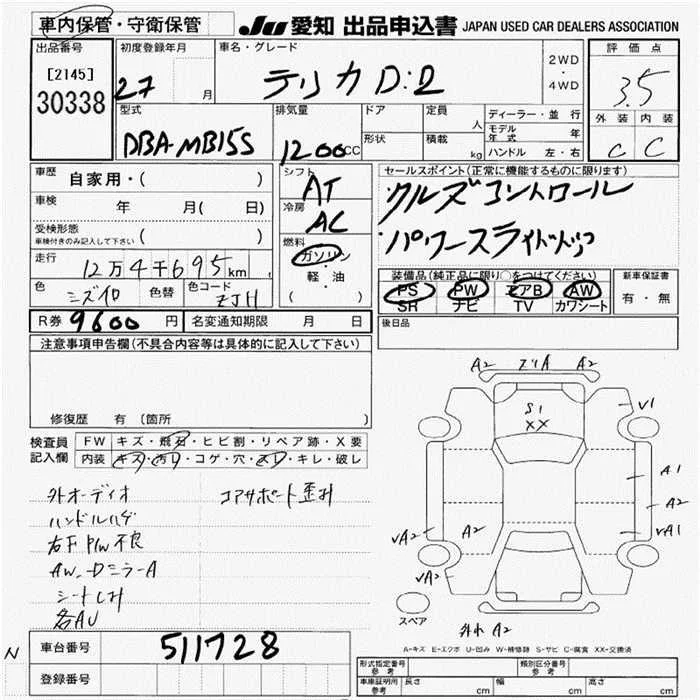 車内保管・守衛保管 JU 愛知 出品申込書 JAPAN USED CAR DEALERS ASSOCIATION
出品番号 初度登録年月 車名・グレード 2WD・4WD 評価点
[2145] 27 月 デリカ D:2 3.5
30338
型式 排気量 ドア 定員 人 ディーラー・並行 外装 内装
DBA-MB15S 1200CC 形状 積載 kg モデル年式 年 C C
ハンドル 左・右
車歴 自家用・( ) シフト AT セールスポイント(正常に機能するものに限ります)
車検 年 月( 日) 冷房 AC クルーズコントロール
受検形態 ( )
車検付きのみ記入して下さい
燃料 ガソリン・軽・油 ( ) パワースライドドア
走行 12万4千695km
色 色替 色コード ZJH
装備品(純正品に限り○をつけてください) 新車保証書
PS PW エアB AW 有・無
SR ナビ TV カワシート
R券 9600円 名変通知期限 月 日 後日品
注意事項申告欄(不具合内容等は具体的に記入して下さい)
修復歴 有 (箇所 )
検査員記入欄 FW キズ・飛石・ヒビ割・リペア跡・X要
内装 キズ・汚れ・コゲ・穴・スレ・キレ・破レ
外オーディオ コアサポート歪み
ハンドルハゲ
右F P/W不良
AW
シートしみ
各AU
A2 A2
S1
XX
V1
A1
A2
VA1
VA2 A2
VA2
スペア
A2
A-キズ E-エクボ U-凹み W-補修跡 S-サビ C-腐食 XX-交換済
N 車台番号 511728
登録番号
形式指定番号 参考 類別区分番号 参考
車庫証明用 参考 長さ cm 幅 cm 高さ cm